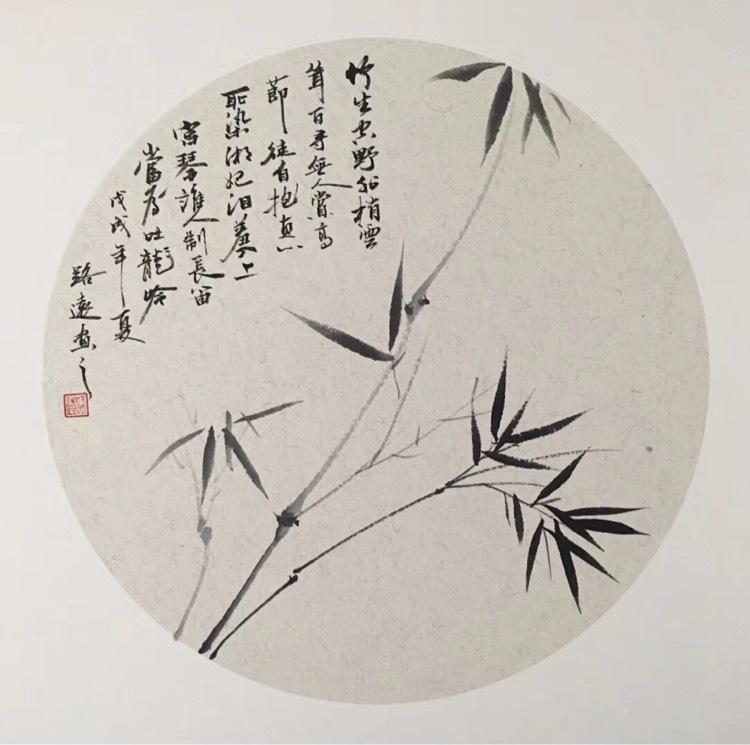 竹生空野外梢雲
聳百尋無人賞高
節徒自抱貞心
恥染湘妃泪羞入上
宮琴誰人制長笛
當為吐龍吟
戊戌年夏
路遠畫之